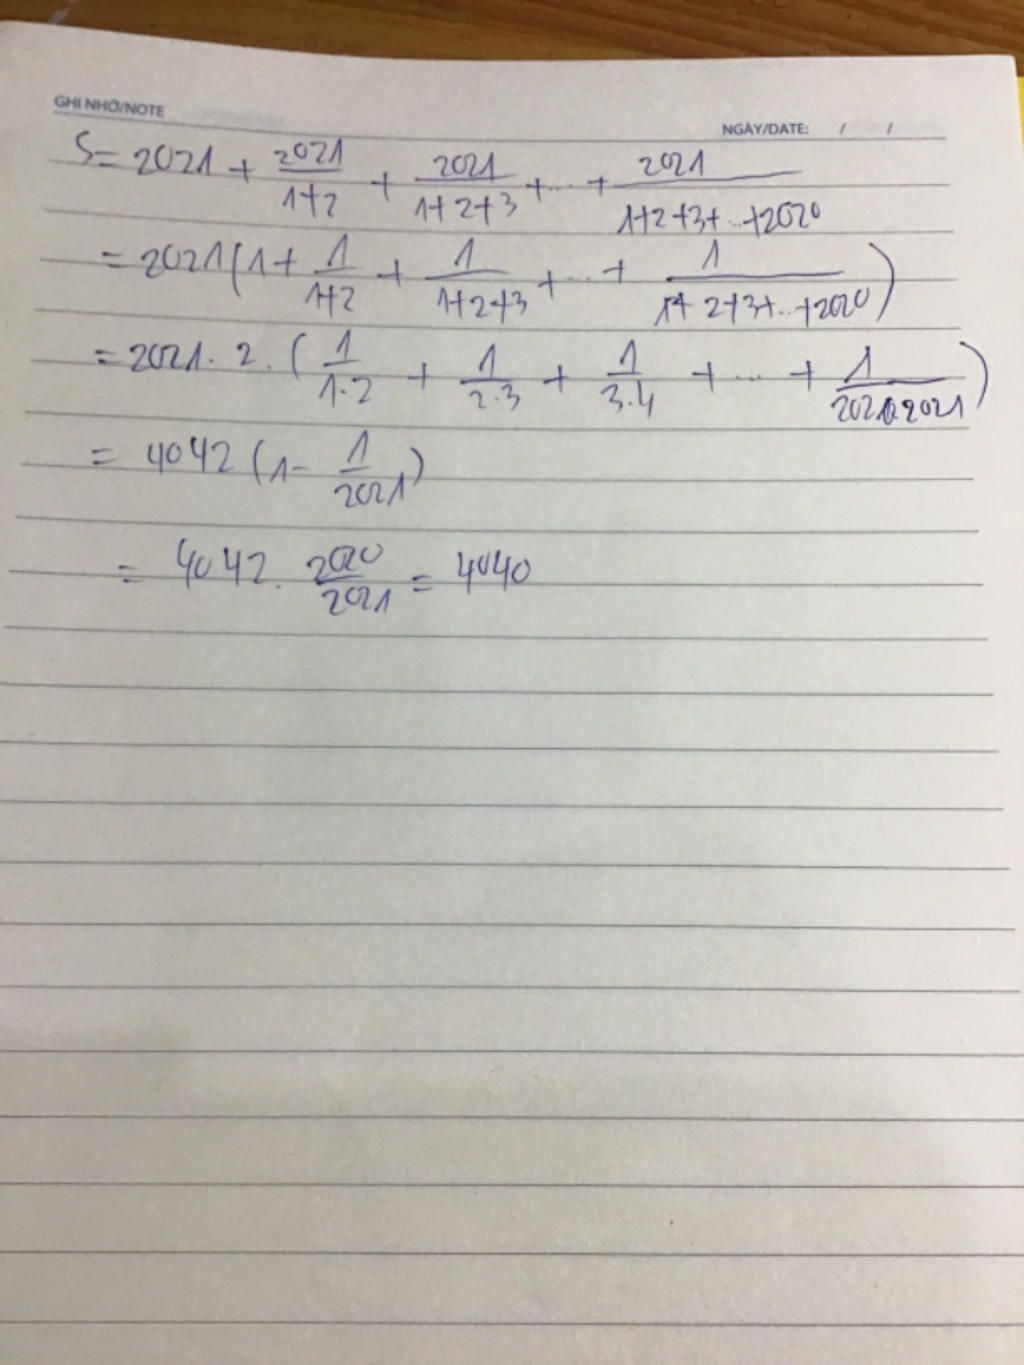 GHI NHỚ/NOTE
NGÀY/DATE: / /
S= 2021 + 2021/1+2 + 2021/1+2+3 +...+ 2021/1+2+3+...+2020
= 2021(1+ 1/1+2 + 1/1+2+3 +...+ 1/1+2+3+...+2020)
= 2021. 2. (1/1.2 + 1/2.3 + 1/3.4 +...+ 1/2020.2021)
= 4042 (1- 1/2021)
= 4042. 2020/2021 = 4040